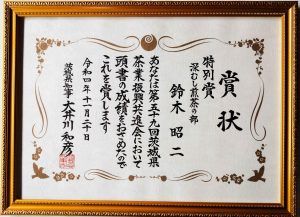 賞状
特別賞
深むし煎茶の部
鈴木昭二
あなたは第五十九回茨城県
茶業振興共進会において
頭書の成績をおさめたので
これを賞します
令和四年十一月二十日
茨城県知事 大井川和彦